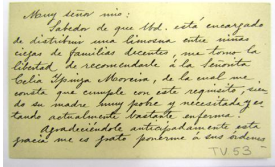 Muy señor mio:
Sabedor de que Ud. está encargado
de distribuir una limosna entre niñas
ciegas de familias decentes, me tomo la
libertad de recomendarle á la Señorita
Celia Spinza Moreira, de la cual me
consta que cumple con este requisito, sien-
do su madre muy pobre y necesitada y es-
tando actualmente bastante enferma.
Agradeciéndole anticipadamente esta
gracia me es grato ponerme á sus ordenes
TV.53-